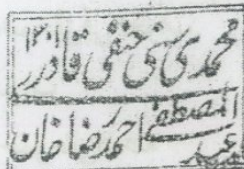 محمدی سنی حنفی قادری ۱۳۰۱
عبد المصطفیٰ احمد رضا خان